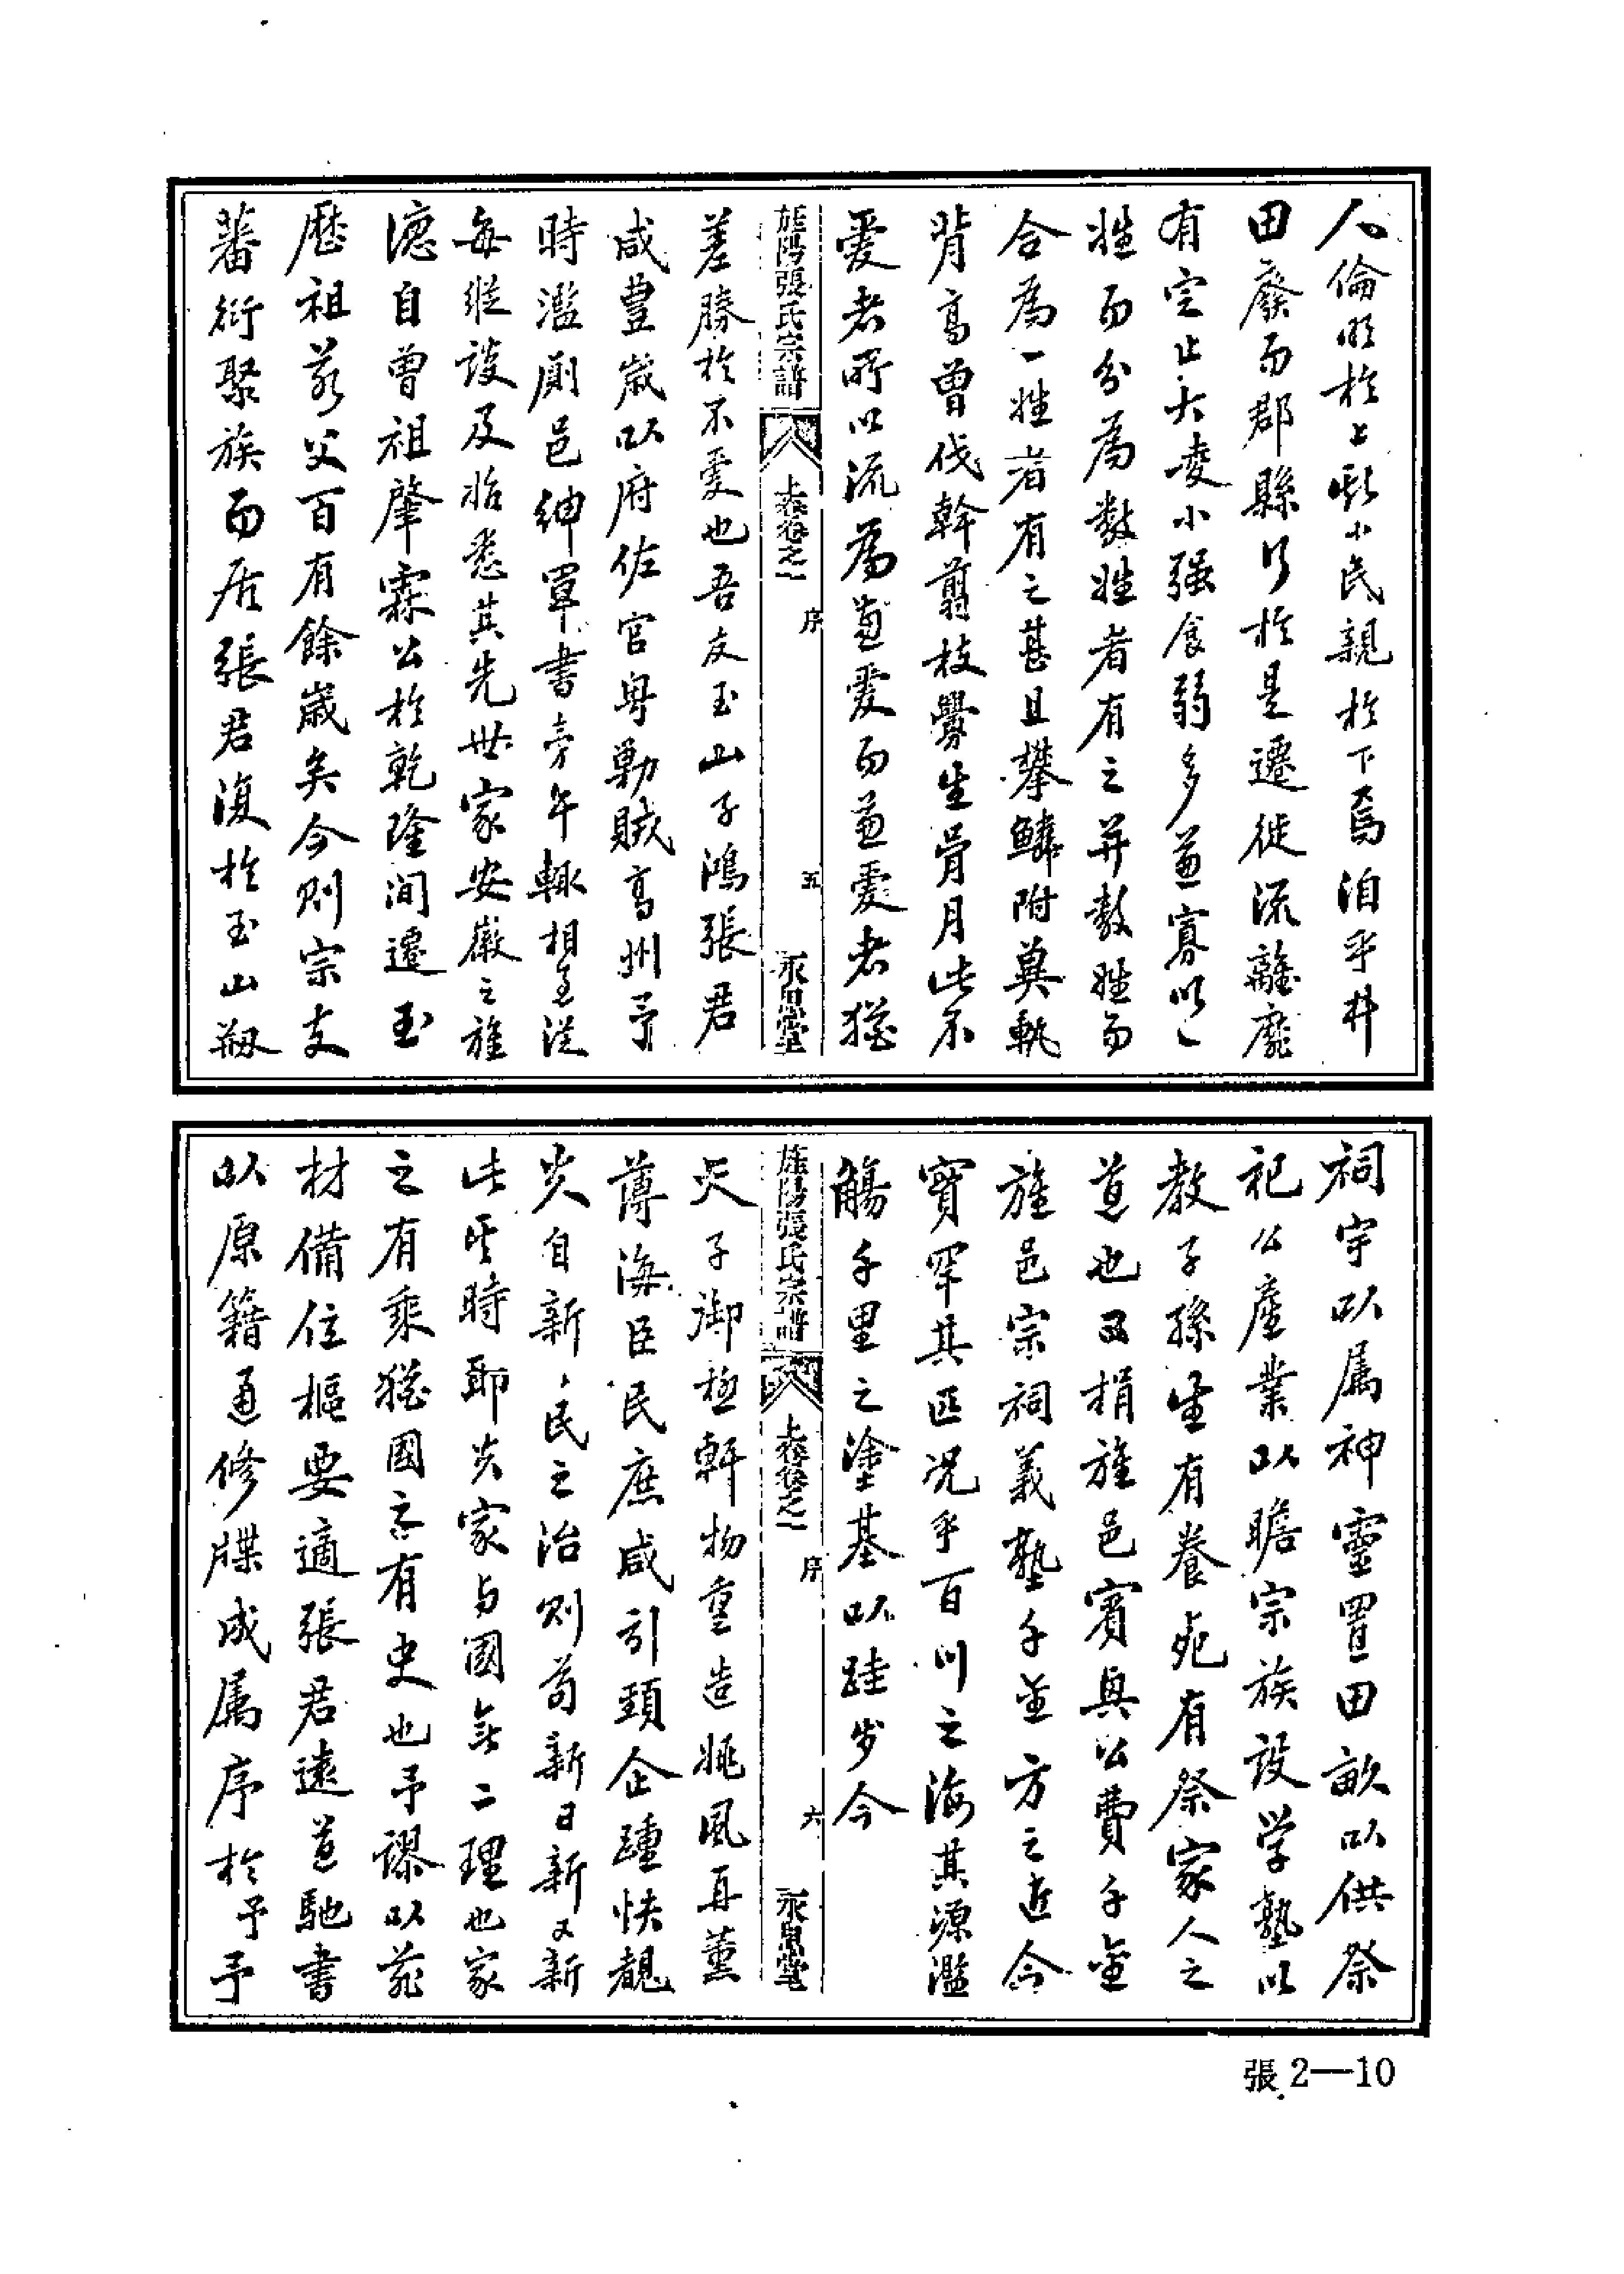 人倫明於上斯小民親於下焉洎乎井
田廢而郡縣行於是遷徙流離靡
有定止大凌小强食弱多蓋寡以一
姓而分為數姓者有之并數姓而
合為一姓者有之甚且攀鱗附冀軌
背高曾伐幹翦枝釁生骨月此不
愛者所以流為兼愛而兼愛者猶
旌陽張氏宗譜 卷之一 序 五 永思堂
差勝於不愛也吾友玉山子鴻張君
咸豊歲以府佐官粤勦賊高州予
時濫廁邑紳軍書旁午輙相過從
每縱談及始悉其先世家安徽之旌
德自曾祖肇霖公於乾隆間遷玉
歷祖若父百有餘歲矣今則宗支
蕃衍聚族而居張君復於玉山刱
祠宇以属神靈置田畝以供祭
祀公產業以贍宗族設学塾以
教子孫生有養死有祭家人之
道也又捐旌邑賓興公費千金
旌邑宗祠義塾千金方之近今
實罕其匹况乎百川之海其源濫
觴千里之塗基以跬步今
旌陽張氏宗譜 卷之一 序 六 永思堂
天子御極軒物重造姚風再薰
薄海臣民庶咸引頸企踵快覩
夫自新新民之治則苟新日新又新
此其時耶夫家与國無二理也家
之有乘猶國之有史也予謬以菲
材備位樞要適張君遠道馳書
以原籍通修牒成属序於予予
張2—10